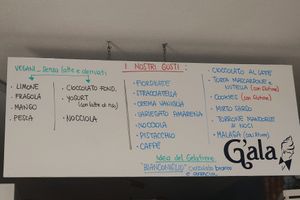 VEGANI.. Senza latte e derivati
• LIMONE
• FRAGOLA
• MANGO
• PESCA
• CIOCCOLATO FOND.
• YOGURT
(con latte di riso)
• NOCCIOLA
I NOSTRI GUSTI:
• FIORDILATTE
• STRACCIATELLA
• CREMA VANIGLIA
• VARIEGATO AMARENA
• NOCCIOLA
• PISTACCHIO
• CAFFÈ
• CIOCCOLATO AL LATTE
• TORTA MASCARPONE e
NUTELLA (con Glutine)
• COOKIES (con Glutine)
• MIRTO SARDO
• TORRONE MANDORLE
DI NOCI
• MALAGA
Idea del Gelatiere:
"BIANCONIGLIO" cioccolato bianco
e
G'ala